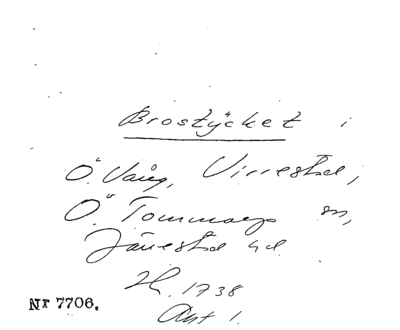 Brostycket i
Ö. Vång, Virrestad,
Ö. Tommarps sn,
Järrestad hd.
H. 1738
Akt 1.
Nr 7706.